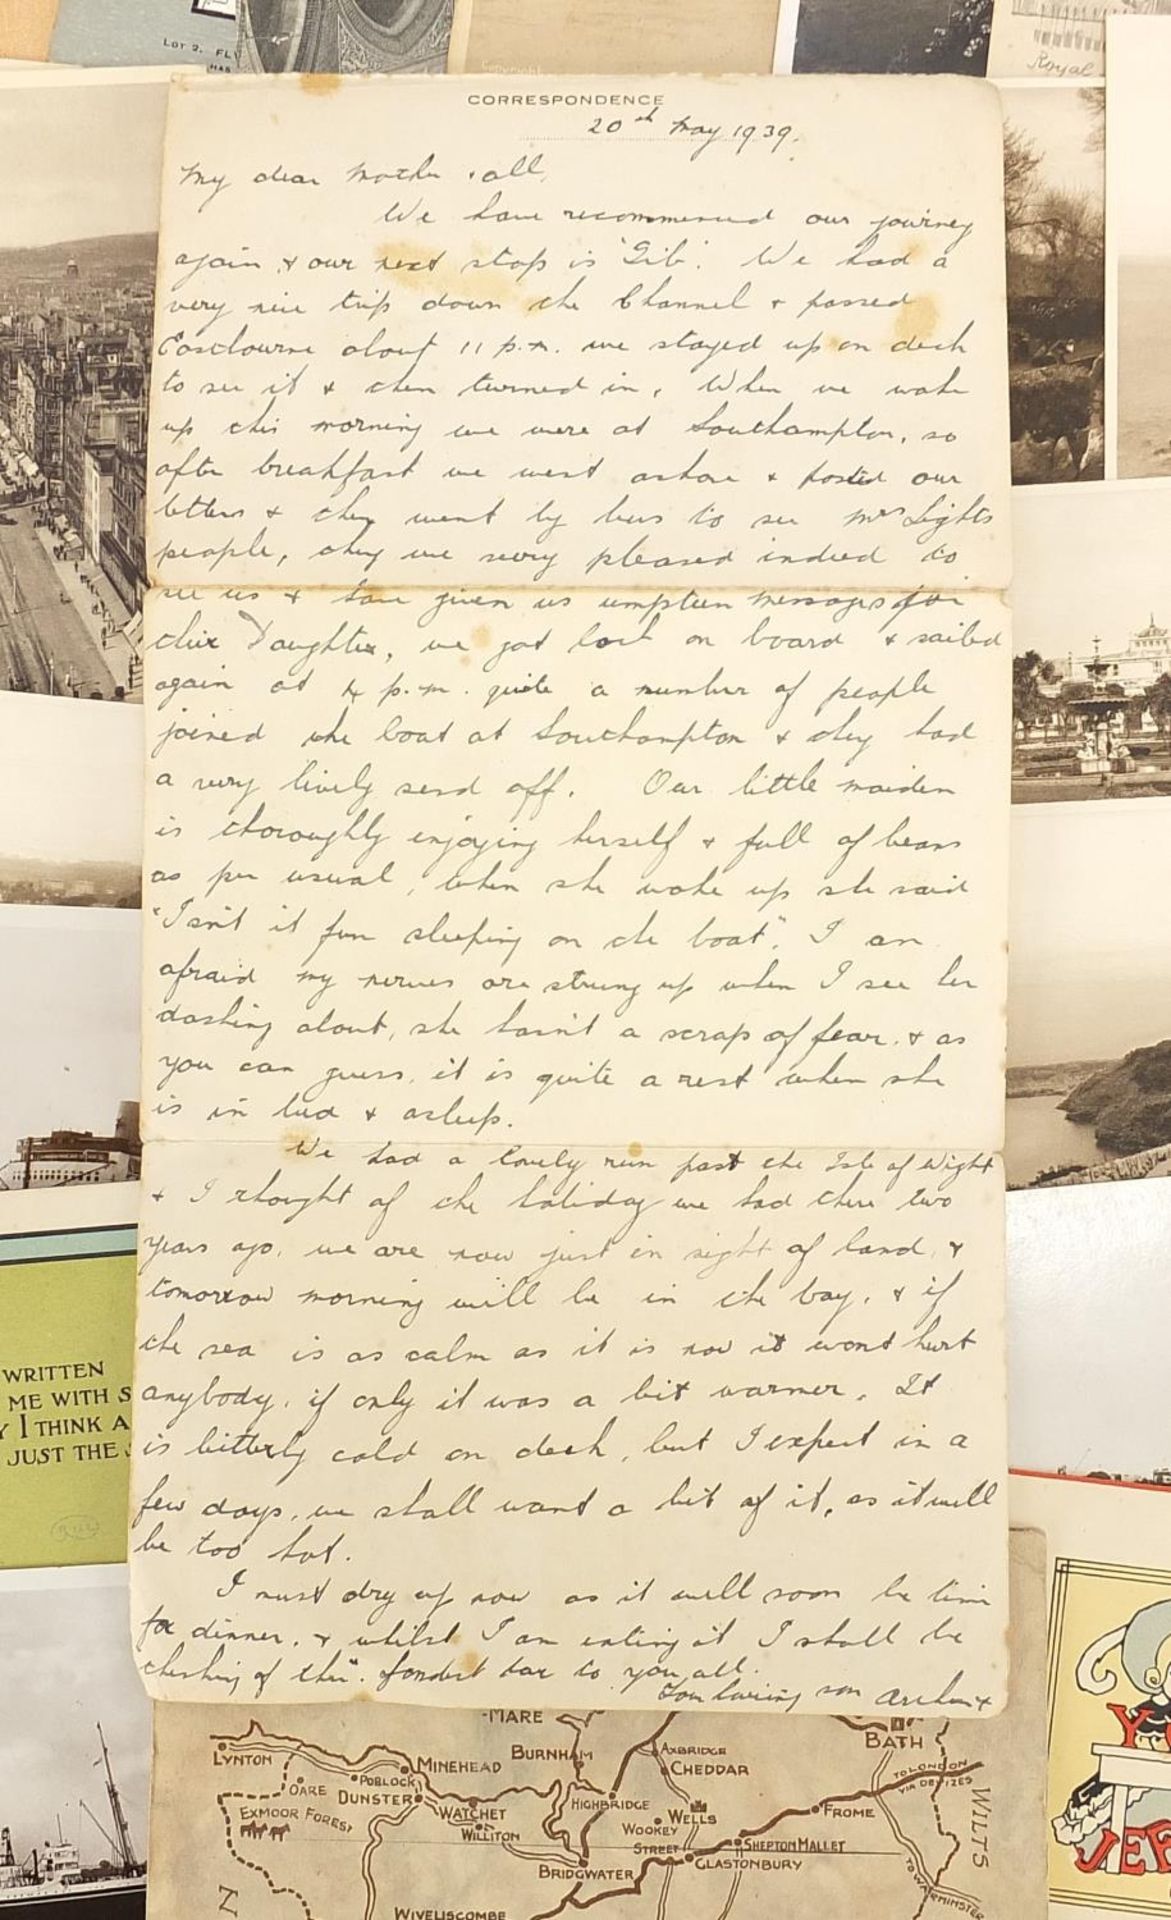 LOT 2. FL
HAS
Copyright
Royal
CORRESPONDENCE
20th May 1939.
My dear Mother & all,
We have recommenced our journey
again, & our next stop is 'Gib'. We had a
very nice trip down the Channel & passed
Eastbourne about 11 p.m. we stayed up on deck
to see it & then turned in. When we woke
up this morning we were at Southampton, so
after breakfast we went ashore & posted our
letters & then went by bus to see Mrs Lights
people, they were very pleased indeed to
see us & have given us umpteen messages for
their Daughter, we got back on board & sailed
again at 4 p.m. quite a number of people
joined the boat at Southampton & they had
a very lively send off. Our little maiden
is thoroughly enjoying herself & full of beans
as per usual, when she woke up she said
"Isn't it fun sleeping on the boat". I am
afraid my nerves are strung up when I see her
dashing about, she hasn't a scrap of fear. & as
you can guess, it is quite a rest when she
is in bed & asleep.
We had a lovely run past the Isle of Wight
& I thought of the holiday we had there two
years ago, we are now just in sight of land, &
tomorrow morning will be in the bay, & if
the sea is as calm as it is now it wont hurt
anybody, if only it was a bit warmer. It
is bitterly cold on deck, but I expect in a
few days, we shall want a bit of it, as it will
be too hot.
I must dry up now as it will soon be time
for dinner. & whilst I am eating it I shall be
thinking of thee". fondest love to you all.
Your loving son
WRITTEN
ME WITH S
Y I THINK A
JUST THE
-MARE
LYNTON
OARE
POBLOCK
MINEHEAD
DUNSTER
EXMOOR FOREST
WATCHET
WILLITON
BURNHAM
HIGHBRIDGE
AXBRIDGE
CHEDDAR
BATH
TO LONDON
VIA DEVIZES
WILTS
WELLS
WOOKEY
FROME
STREET
SHEPTON MALLET
GLASTONBURY
BRIDGWATER
TO WARMINSTER
WIVELISCOMBE
N
Y
JE